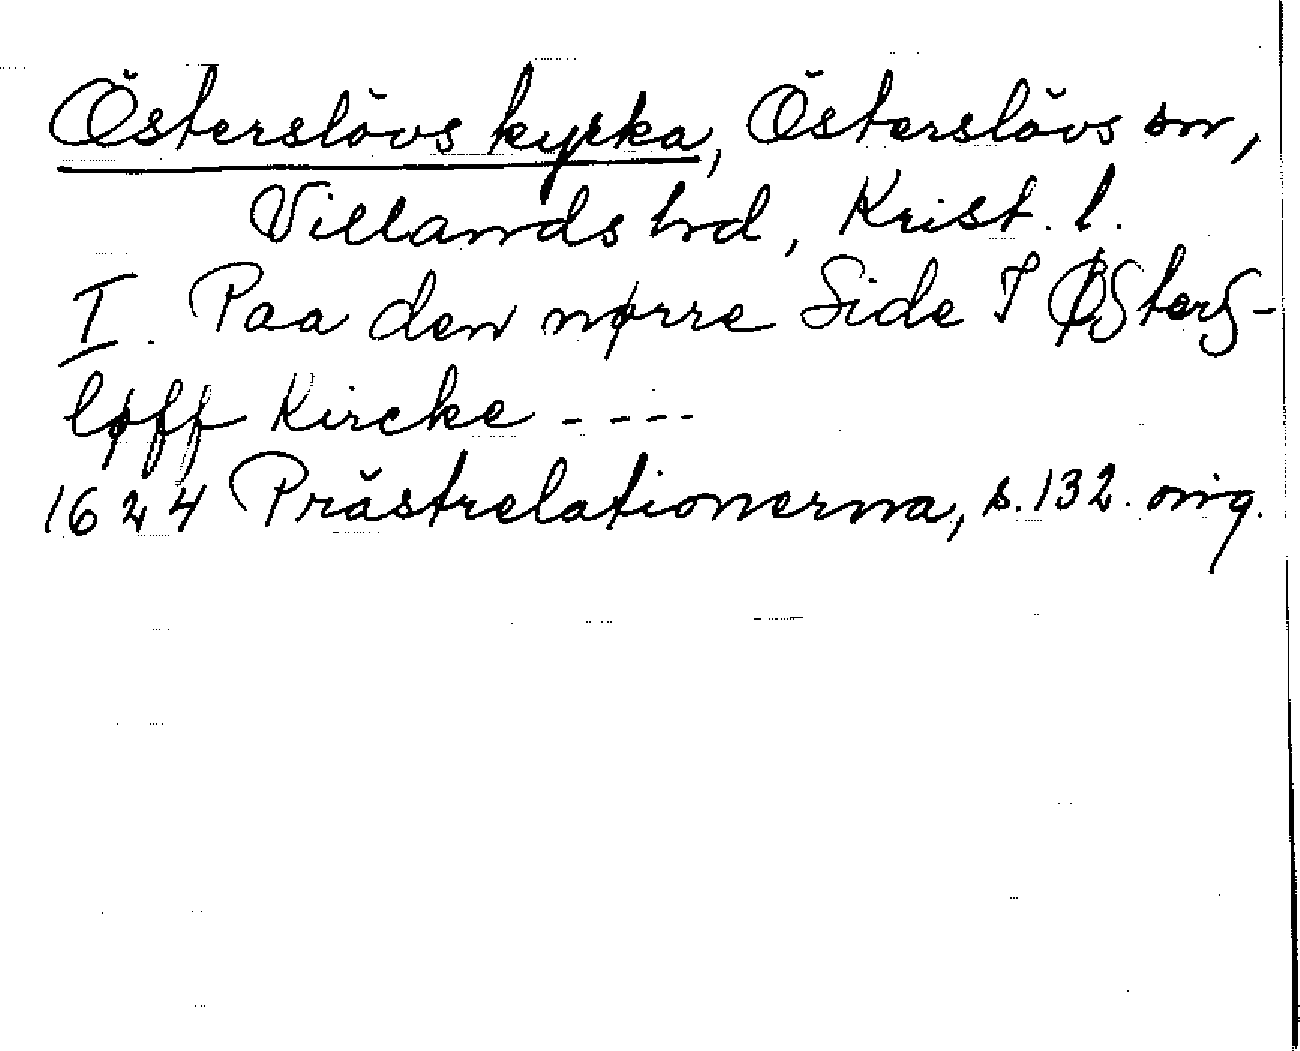 Österslövs kyrka, Österslövs sn,
Villands hrd, Krist. l.
I. Paa den nørre Side I Østers-
løff Kircke - - - -
1624 Prästrelationerna, s. 132. orig.